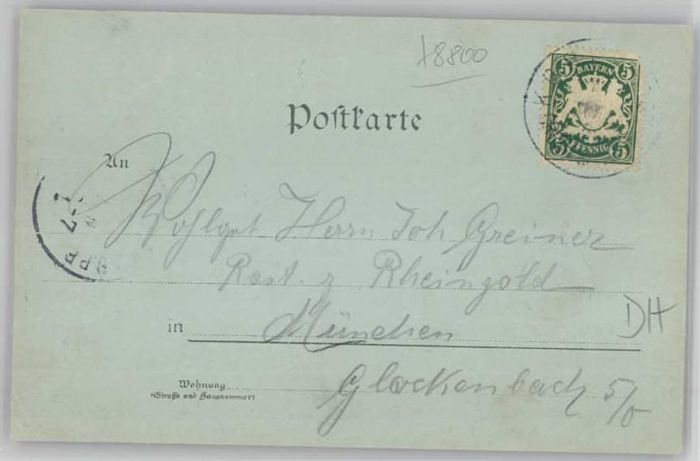 x8800
5 BAYERN 5
5 PFENNIG 5
Postkarte
An
Wohlgeb Herrn Joh Greiner
Rest. z Rheingold
in München
DH
Wohnung
(Straße und Hausnummer)
Glockenbach 5/0
7-